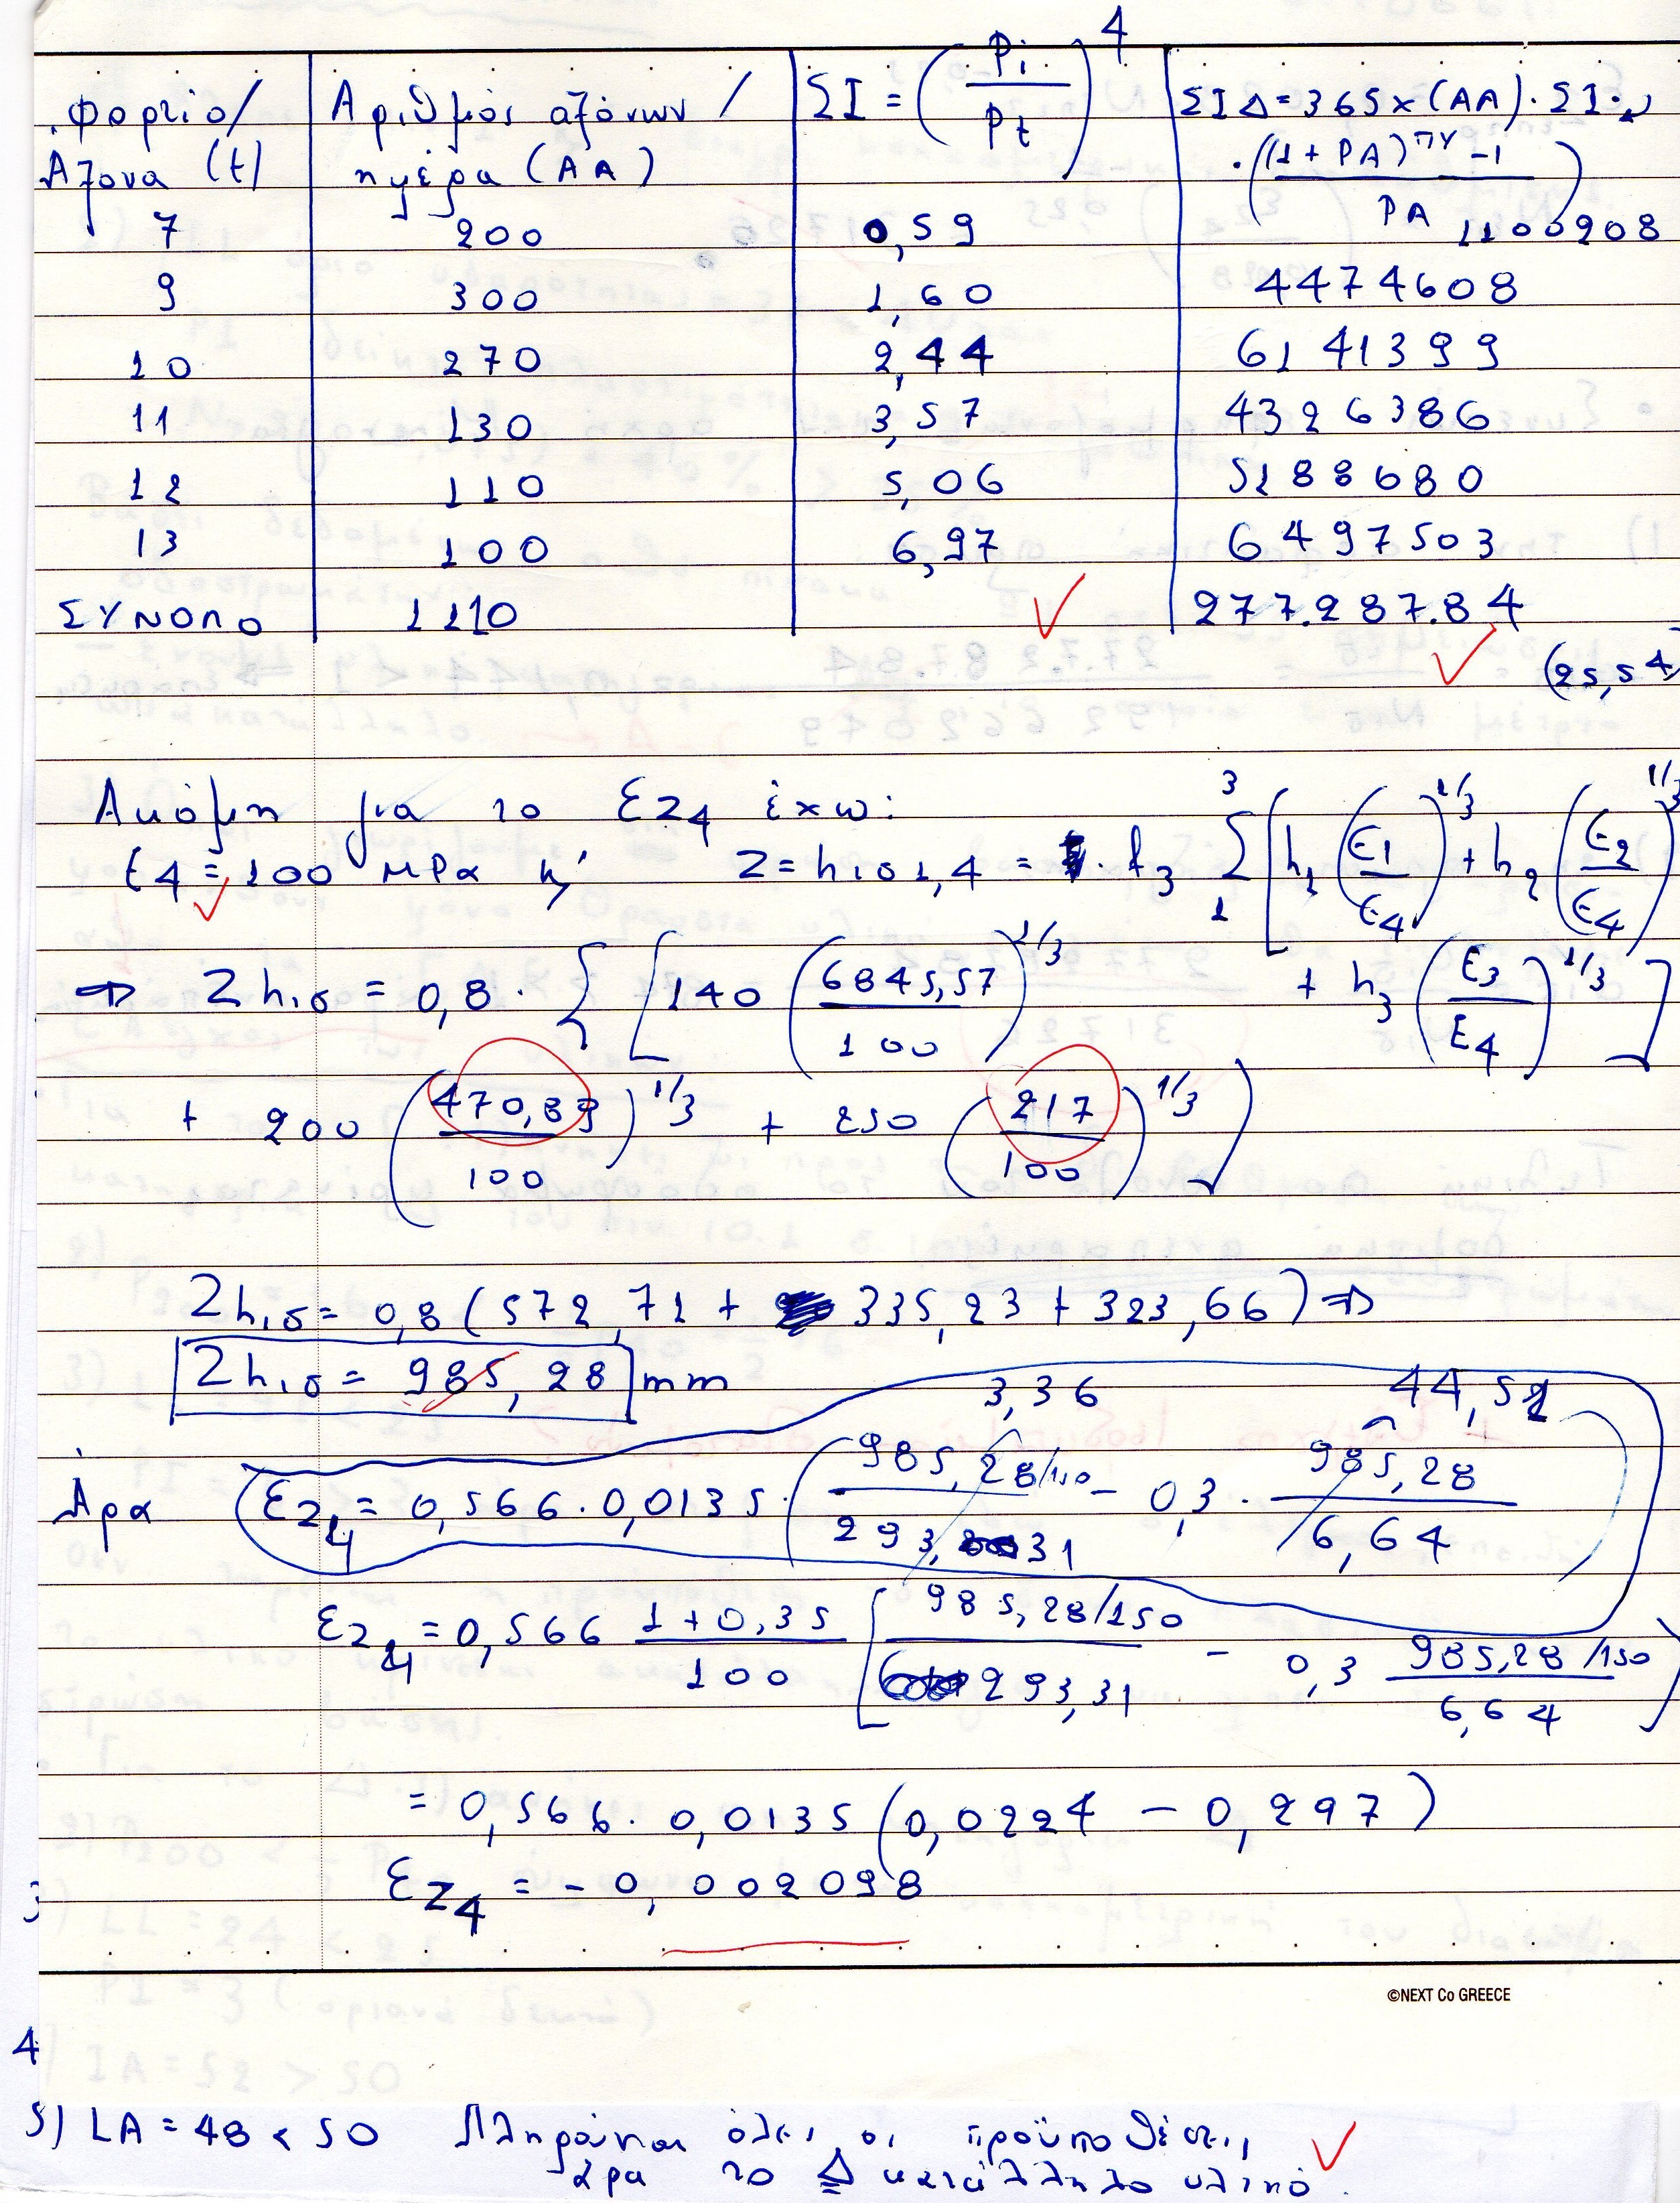 Φορτίο/ Άξονα (t) | Αριθμός αξόνων / ημέρα (ΑΑ) | ΣΙ = (Pi / Pt)^4 | ΣΙΔ = 365 x (ΑΑ) · ΣΙ · ((1 + ΡΑ)^ΠΥ - 1 / ΡΑ)
7 | 200 | 0,59 | 1100908
9 | 300 | 1,60 | 4474608
10 | 270 | 2,44 | 6141399
11 | 130 | 3,57 | 4326386
12 | 110 | 5,06 | 5188680
13 | 100 | 6,97 | 6497503
ΣΥΝΟΛΟ | 1110 | 277.287.84
(25,54
Ακόμη για το εz4 έχω:
E4 = 100 MPa κ' Z = hισ1,4 = · f3 Σ 1 3 [h1 (E1/E4)^1/3 + h2 (E2/E4)^1/3
+ h3 (E3/E4)^1/3]
⇒ Zhισ = 0,8 · { [140 (6845,57/100)^1/3
+ 200 (470,89/100)^1/3 + 250 (217/100)^1/3]
Zhισ = 0,8 (572,71 + 335,23 + 323,66) ⇒
Zhισ = 985,28 mm
3,36 44,51
Άρα εz4 = 0,566 · 0,0135 · (985,28/150 / 293,31 - 0,3 · 985,28 / 6,64)
εz4 = 0,566 1 + 0,35 / 100 [985,28/150 / 293,31 - 0,3 985,28/150 / 6,64]
= 0,566 · 0,0135 (0,0224 - 0,297)
εz4 = - 0,002098
©NEXT Co GREECE
4
5) LA = 48 < 50 Πληρούνται όλες οι προϋποθέσεις
άρα το Δ κατάλληλο υλικό.